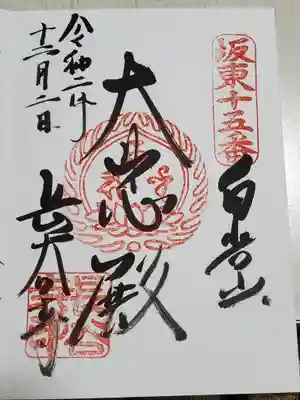 坂東十五番
白岩山
大悲殿
長谷寺
令和二年
十二月二日